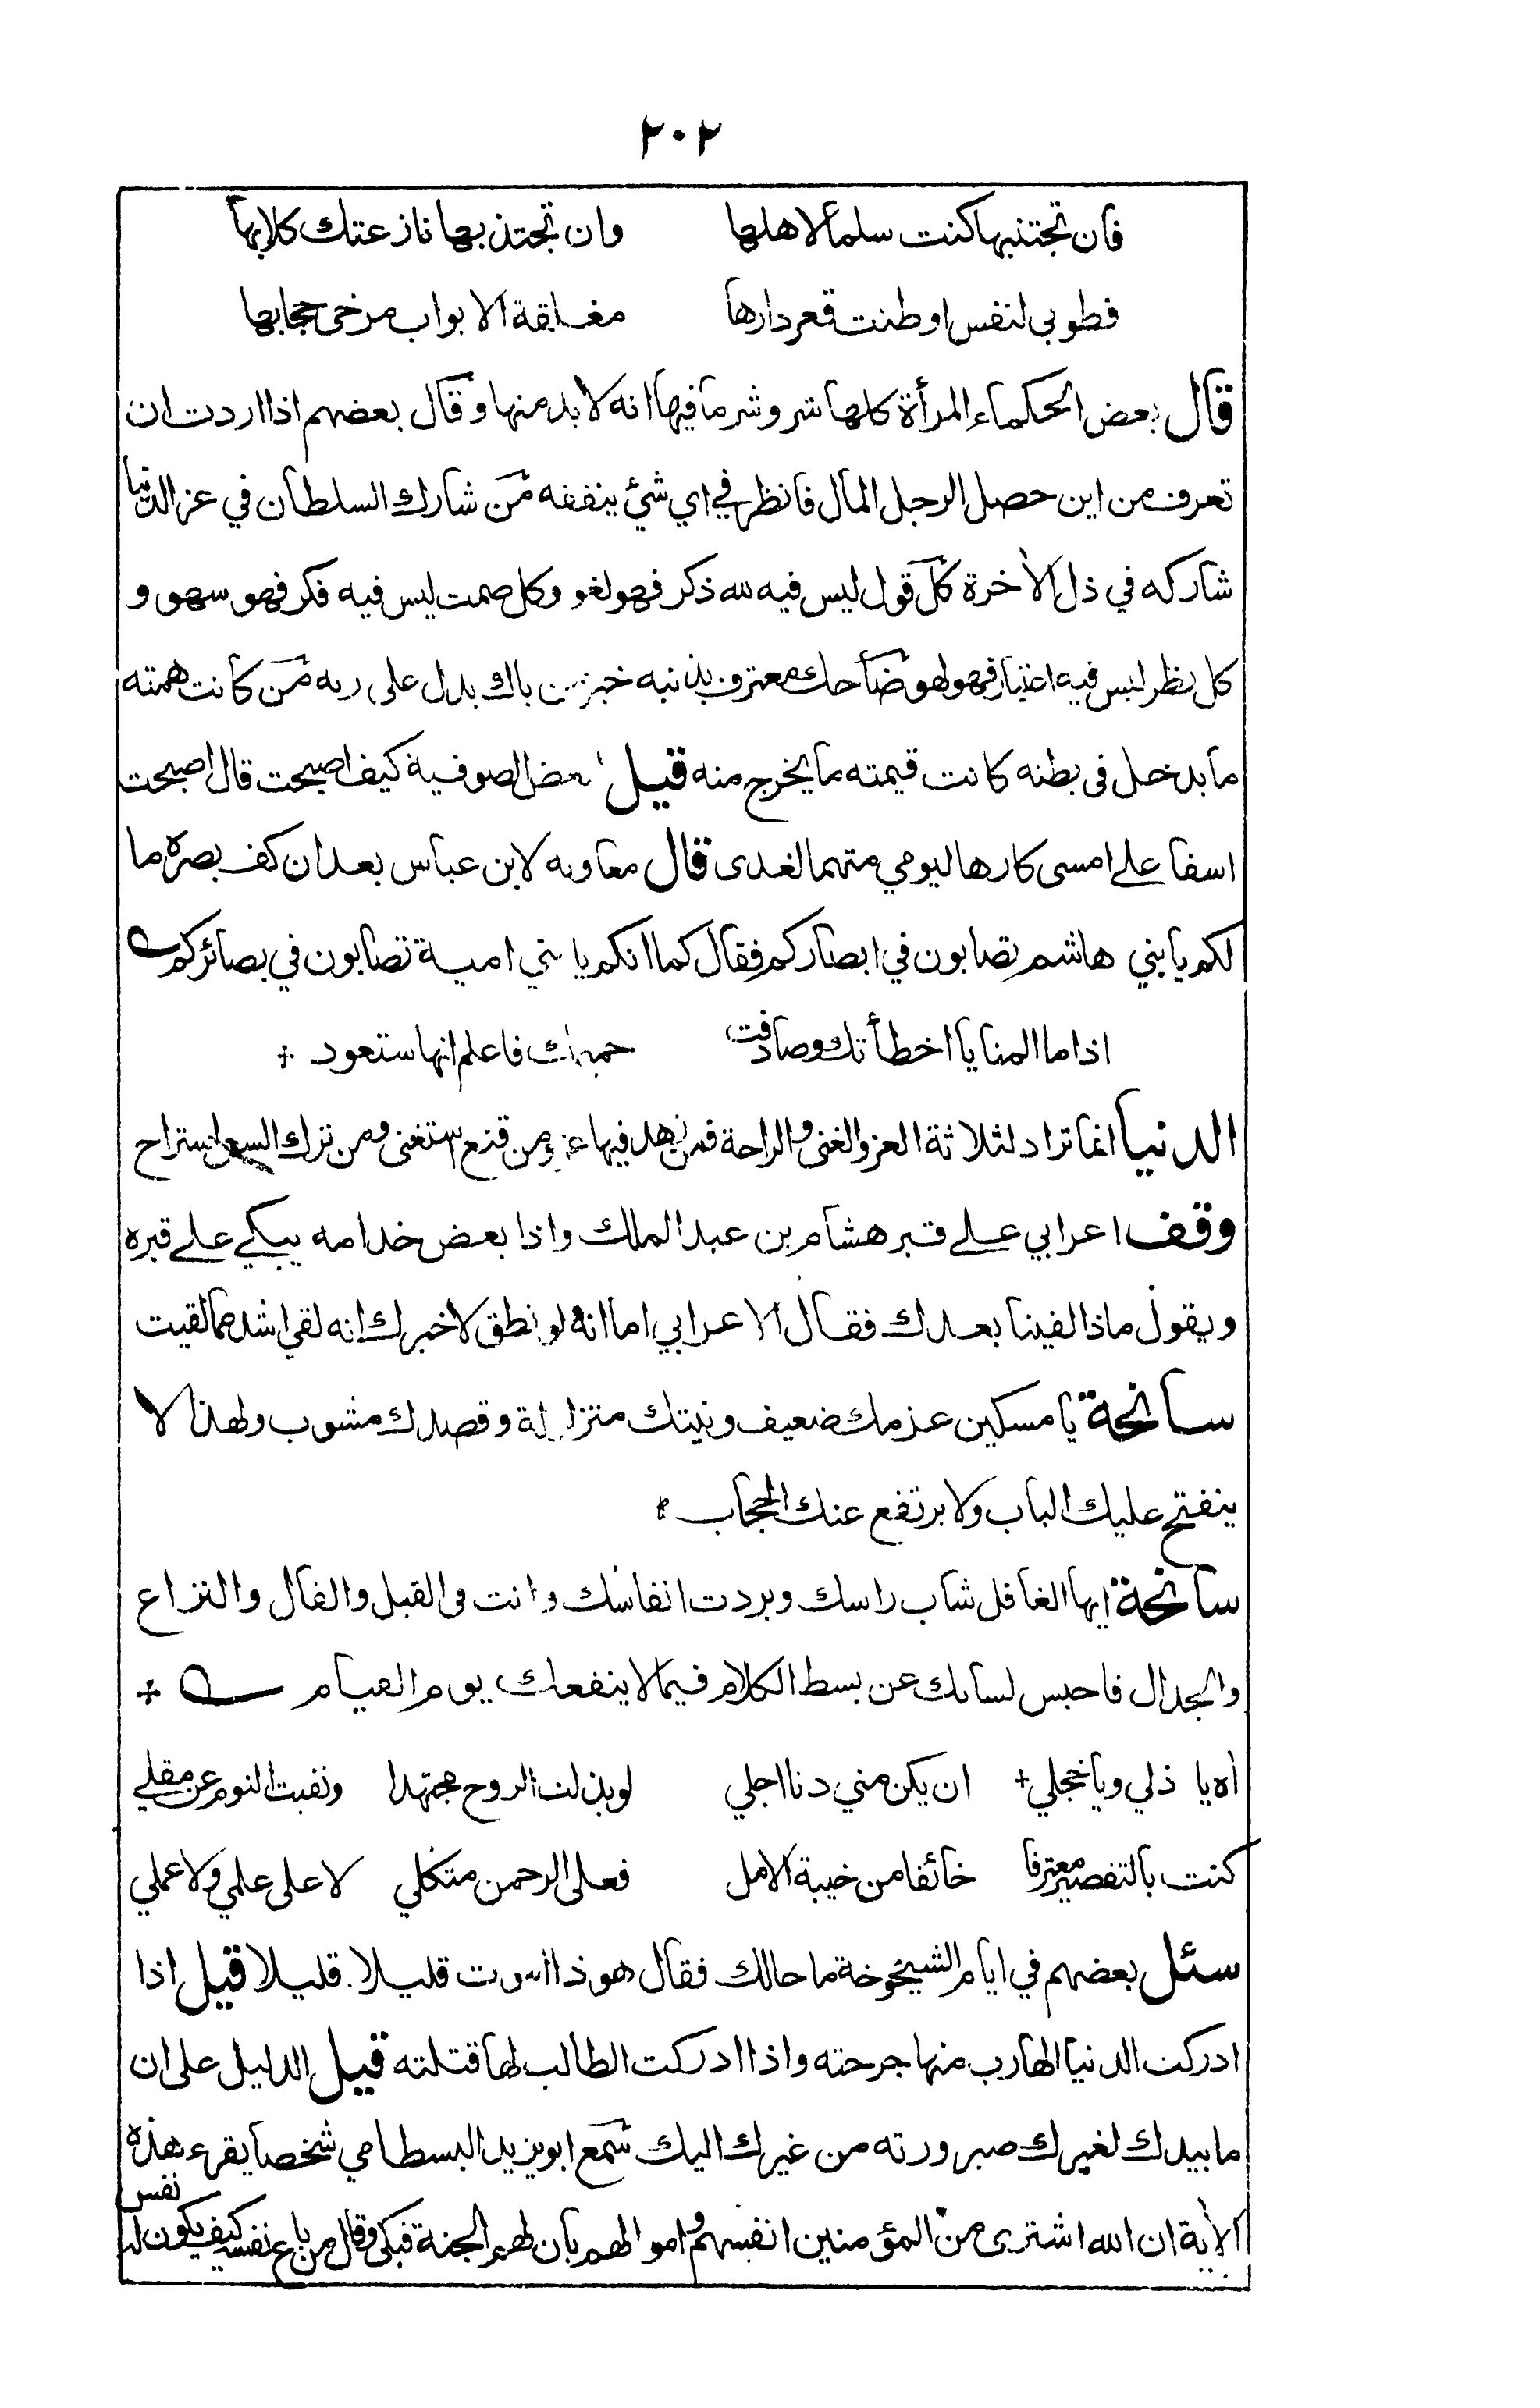 ٢٠٢
فان تجتنبها كنت سلما لاهلها وان تجتذبها نازعتك كلابها
فطوبى لنفس اوطنت قعر دارها مغلقة الابواب مرخى حجابها
قال بعض الحكماء المرأة كلها شر وشر ما فيها انه لا بد منها وقال بعضهم اذا اردت ان
تعرف من اين حصل الرجل المال فانظر في اي شئ ينفقه من شارك السلطان في عز الدنيا
شاركه في ذل الآخرة كل قول ليس فيه لله ذكر فهو لغو وكل صمت ليس فيه فكر فهو سهو و
كل نظر ليس فيه اعتبار فهو لهو ضاحك معترف بذنبه خير من باك يدل على ربه من كانت همته
ما يدخل في بطنه كانت قيمته ما يخرج منه قيل لبعض الصوفية كيف اصبحت قال اصبحت
اسفا على امسى كارها ليومي متهما لغدى قال معاويه لابن عباس بعد ان كف بصره ما
لكم يا بني هاشم تصابون في ابصاركم فقال كما انكم يا بني امية تصابون في بصائركم
اذا ما المنايا اخطأتك وصادفت حميمك فاعلم انها ستعود
الدنيا انما تراد لثلاثة العز والغنى والراحة فمن زهد فيها عز ومن قنع استغنى ومن ترك السعى استراح
وقف اعرابي على قبر هشام بن عبد الملك واذا بعض خدامه يبكي على قبره
ويقول ماذا لقينا بعدك فقال الاعرابي اما انه لو نطق لاخبرك انه لقي اشد مما لقيت
سانحة يا مسكين عزمك ضعيف ونيتك متزلزلة وقصدك مشوب ولهذا لا
ينفتح عليك الباب ولا يرتفع عنك الحجاب
سانحة ايها الغافل شاب راسك وبردت انفاسك وانت في القيل والقال والنزاع
والجدال فاحبس لسانك عن بسط الكلام فيما لا ينفعك يوم القيام
آه يا ذلي ويا خجلي ان يكن مني دنا اجلي لو بذلت الروح مجتهدا ونفيت النوم عن مقلي
كنت بالتقصير معترفا خائفا من خيبة الامل فعلى الرحمن متكلي لا على علمي ولا عملي
سئل بعضهم في ايام الشيخوخة ما حالك فقال هو ذا اموت قليلا قليلا قيل اذا
ادركت الدنيا الهارب منها جرحته واذا ادركت الطالب لها قتلته قيل الدليل على ان
ما بيدك لغيرك صيرورته من غيرك اليك سمع ابو يزيد البسطامي شخصا يقرء هذه
الآية ان الله اشترى من المؤمنين انفسهم واموالهم بان لهم الجنة فبكى وقال من باع نفسه كيف يكون له نفس